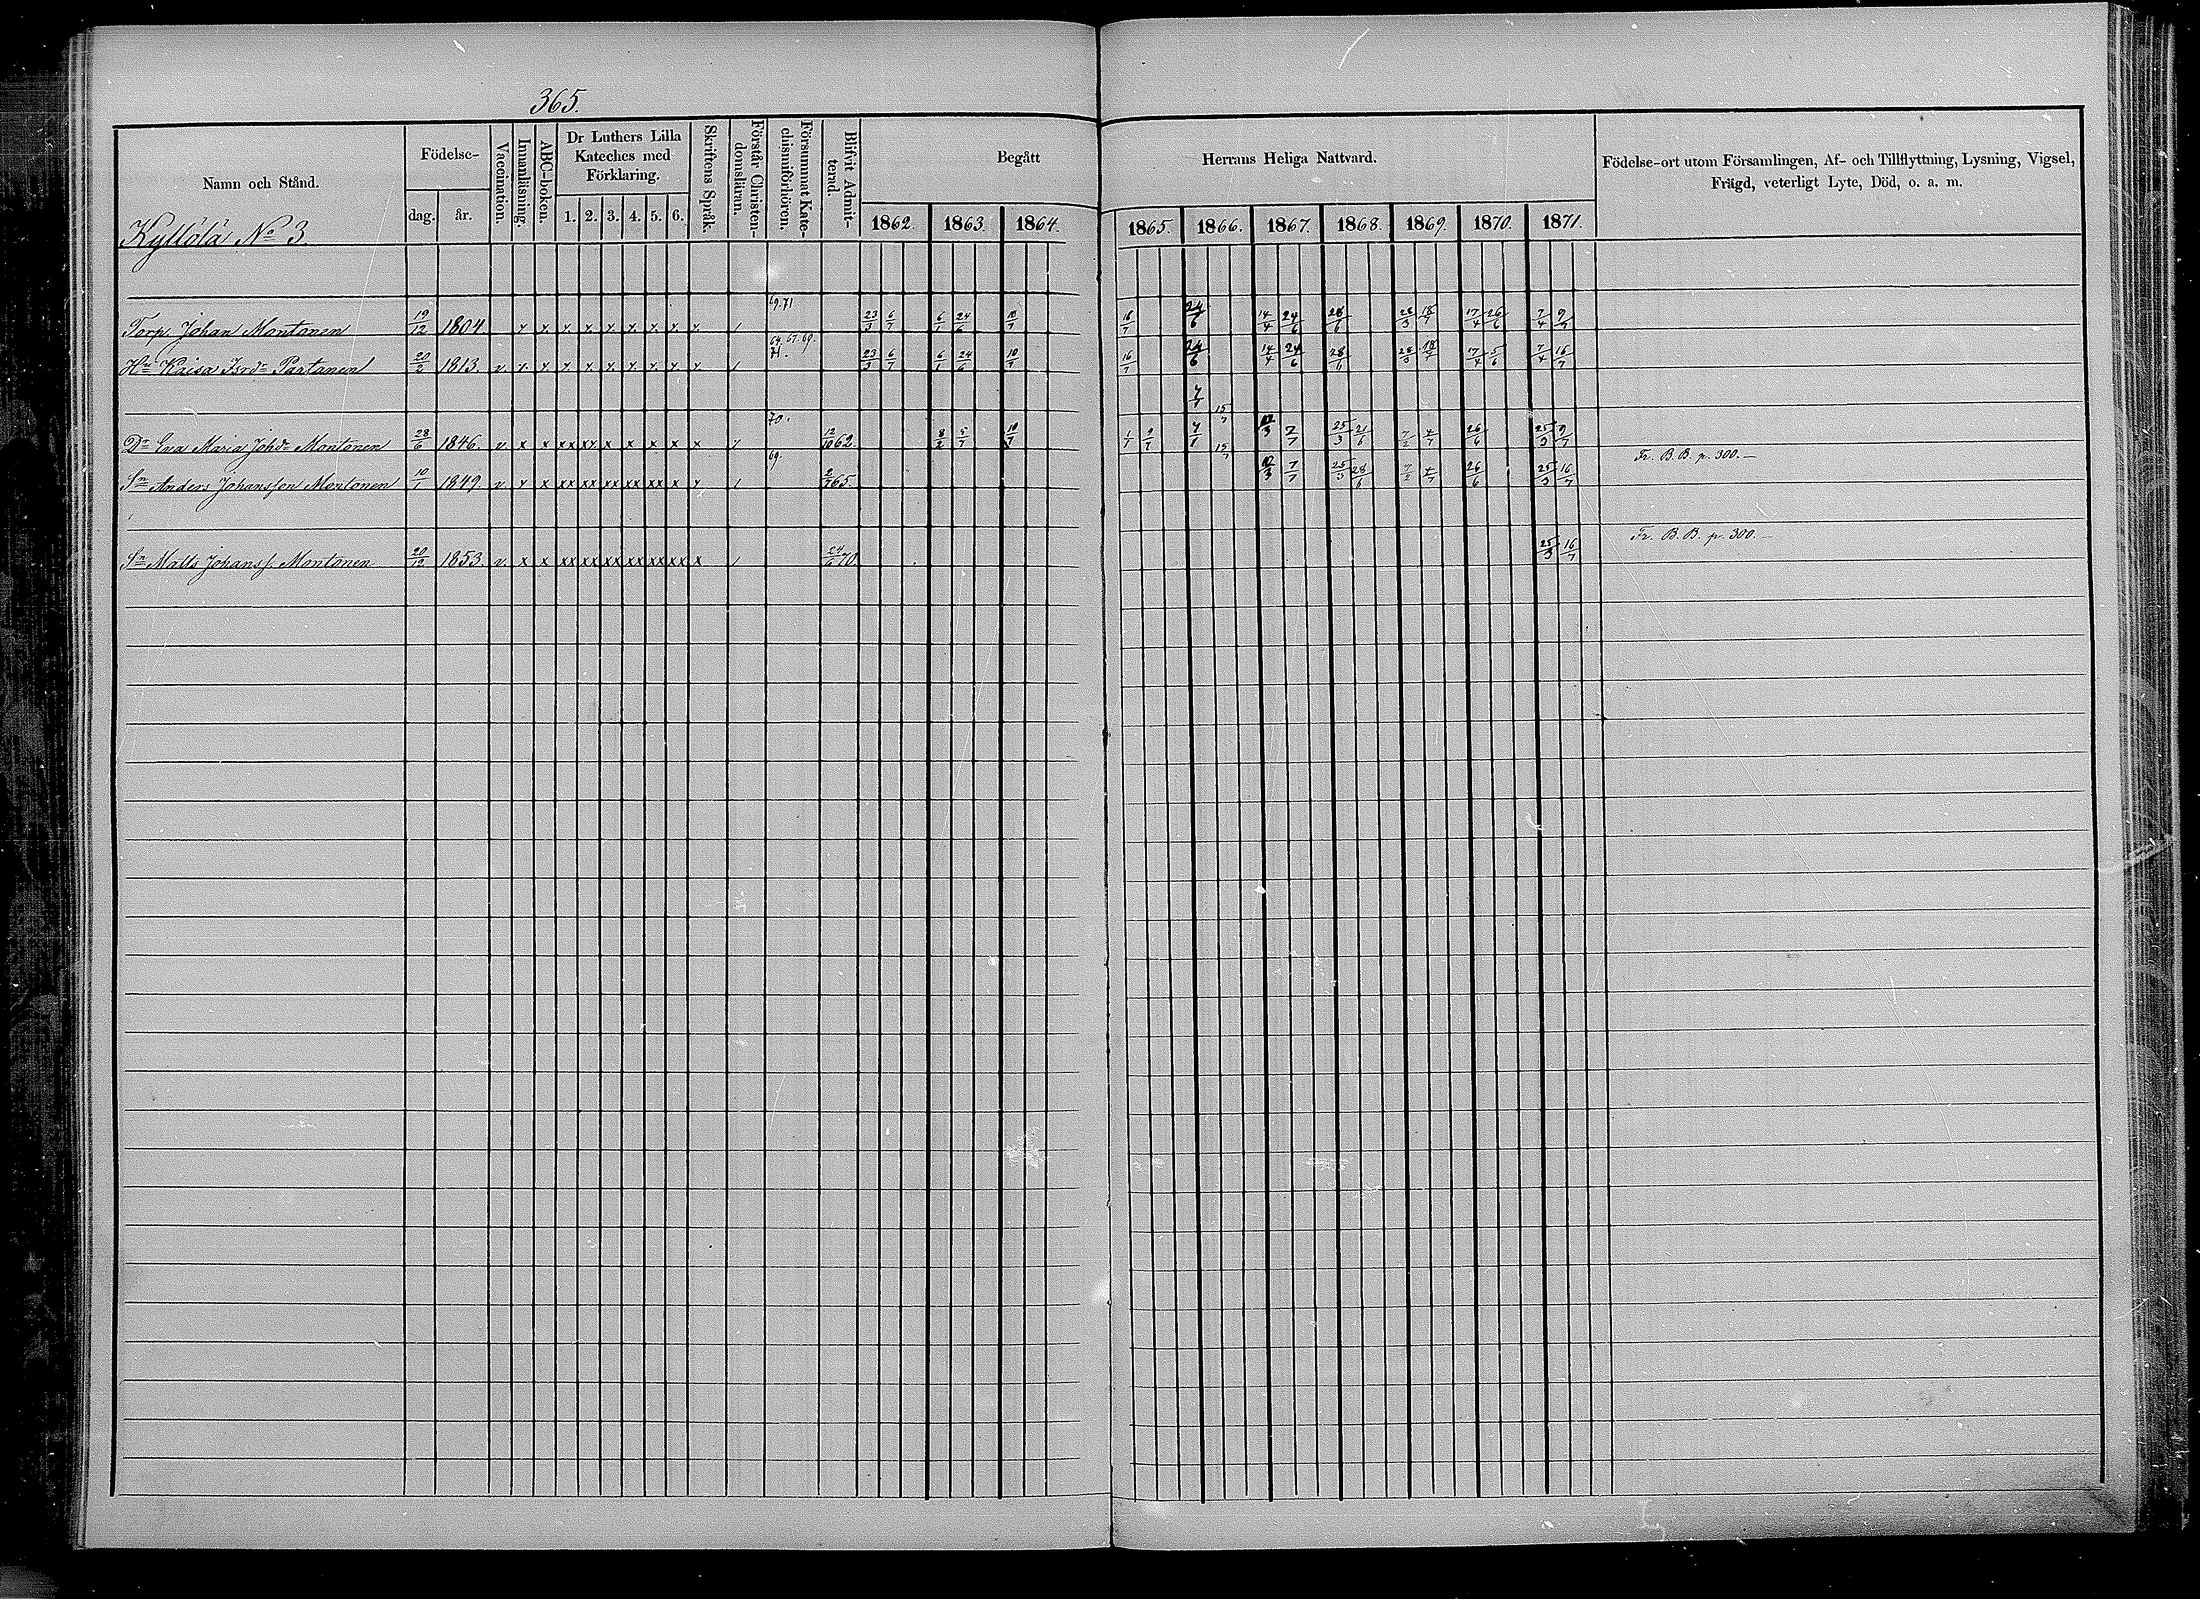 365.
Namn och Stånd.
Födelse-
dag. år.
Vaccination.
Innanläsning.
ABC-boken.
Dr Luthers Lilla Kateches med Förklaring.
1. 2. 3. 4. 5. 6.
Skriftens Språk.
Förstår Christendomsläran.
Försummat Katechismiförhören.
Blifvit Admitterad.
Begått Herrans Heliga Nattvard.
1862. 1863. 1864. 1865. 1866. 1867. 1868. 1869. 1870. 1871.
Födelse-ort utom Församlingen, Af- och Tillflyttning, Lysning, Vigsel,
Frägd, veterligt Lyte, Död, o. a. m.
Kyllölä No 3.
69.71
Torp. Johan Montonen 19/12 1804 x x x x x x x x x / 23/3 6/7 6/1 24/6 10/7 16/7 24/6 14/4 24/6 28/6 28/3 18/7 17/4 26/6 7/4 9/7
64. 67. 69.
71.
Hu Kaisa Brdr Partanen 20/2 1813. v. x x x x x x x x x / 23/3 6/7 6/1 24/6 10/7 16/7 24/6 14/4 24/6 28/6 28/3 18/7 17/4 5/6 7/4 16/7
70.
Dr Eva Maria Johdr Montonen 28/6 1846. v. x x xx xx x x x x x / 12/10 62. 8/2 5/7 10/7 1/7 9/7 15/7 12/3 7/7 25/3 21/6 7/2 4/7 26/6 25/3 9/7
69.
Sn Anders Johansson Montonen 10/1 1849 v. x x xx xx xx xx xx x x / 2/7 65. 15/7 12/3 7/7 25/3 28/6 7/2 4/7 26/6 25/3 16/7 Fr. B. B. p. 300.—
Sn Matts Johanss. Montonen 20/12 1853. v. x x xx xx xx xx xx xx x / 24/6 70. 25/3 16/7 Fr. B. B. p. 300.—